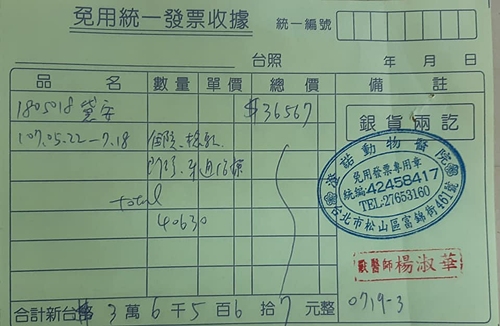 免用統一發票收據
統一編號
台照 年 月 日
品名 數量 單價 總價 備註
1805018 黛安 $36567
107.05.22-7.18 住院、檢驗
total
40630
銀貨兩訖
澄諾動物醫院
免用發票專用章
統編:42458417
TEL:27653160
台北市松山區富錦街461號
獸醫師 楊淑華
合計新台幣 3 萬 6 千 5 百 6 拾 7 元整
0719-3